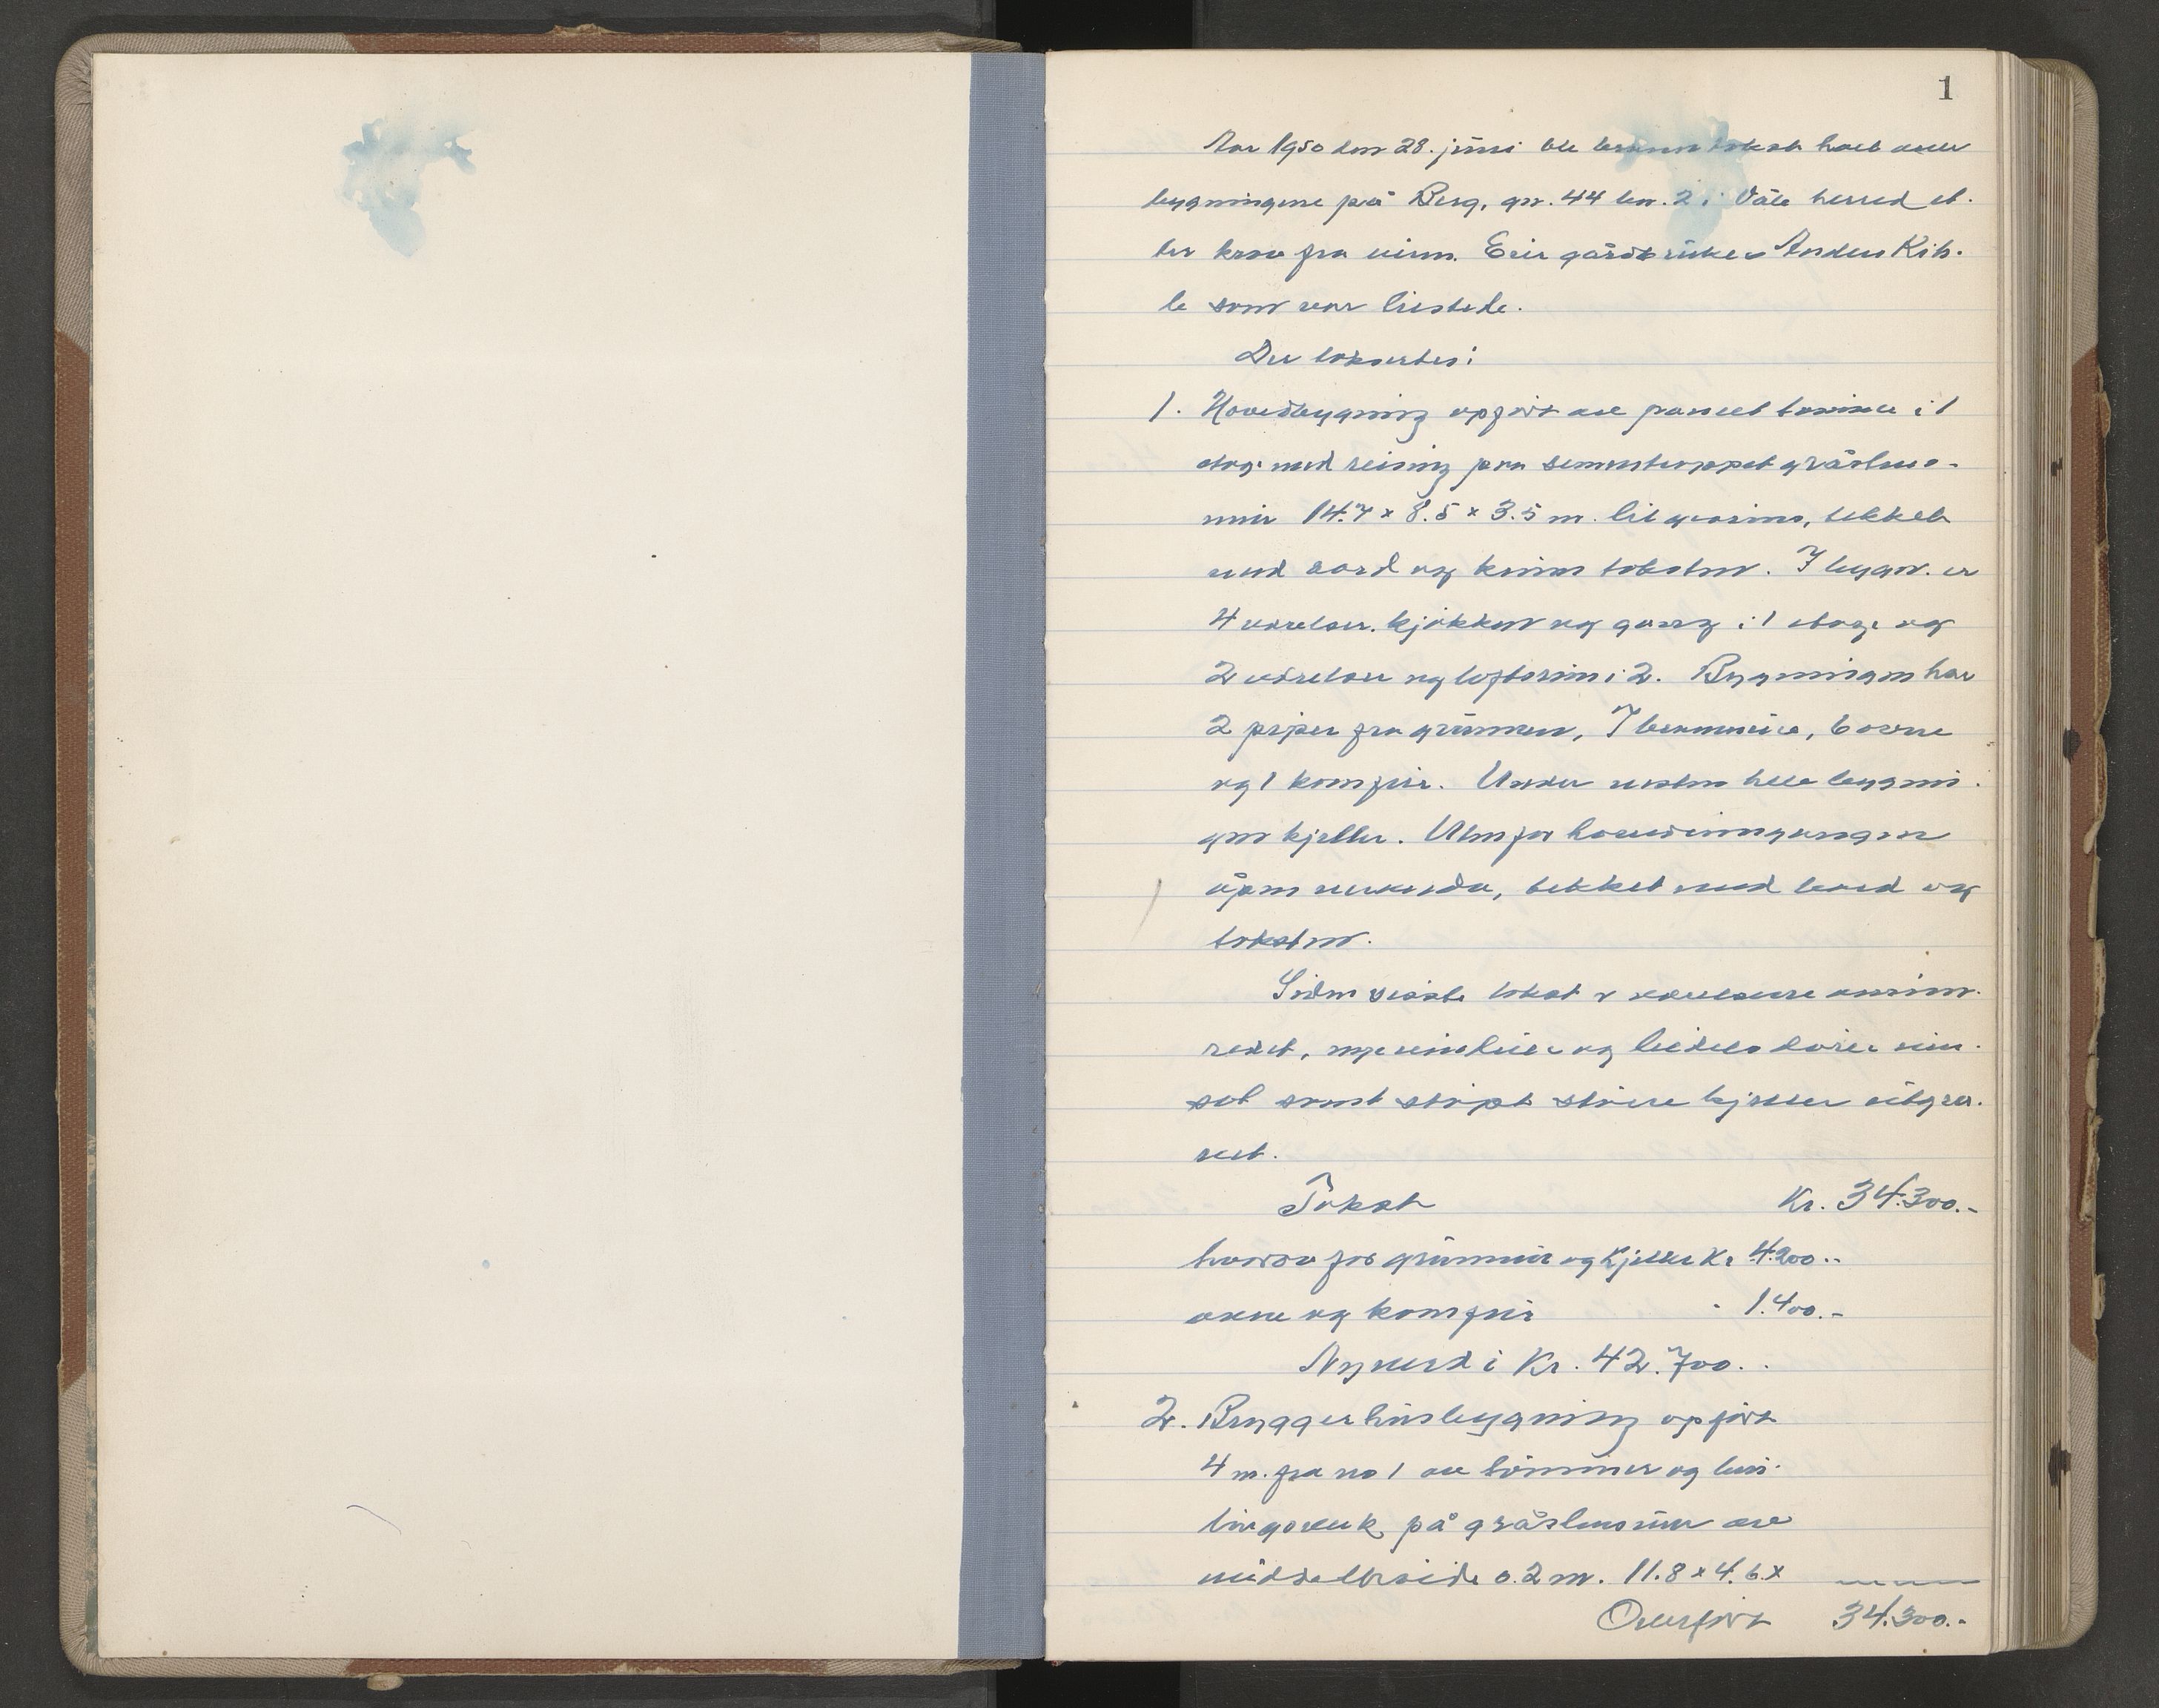 1
Aar 1950 den 28. juni ble branntakst holt over
bygningene på Berg, gnr. 44 bnr. 2 i Våle herred et-
ter krav fra eieren. Eier gårdbruker Anders Kih-
le som var tilstede.
Der takseртes:
1. Hovedbygning opført av panelt tømmer i 1
etage med reising paa sementrappet gråstens-
mur 14.7 x 8.5 x 3.5 m. til gesims, tekket
med bord og krum taksten. I bygn. er
4 værelser, kjøkken og gang i 1 etage og
2 værelser og loftsrum i 2. Bygningen har
2 piper fra grunnen, 7 brannmure, 6 ovne
og 1 komfur. Under nesten hele bygnin-
gen kjeller. Utenfor hovedinngangen
åpen veranda, tekket med bord og
taksten.
Siden siste takst er værelsene ominn-
redet, nye vinduer og tildels dører inn-
satt samt støpt større kjeller utgra-
vet.
Takst Kr. 34.300.-
hvorav for grunnmur og kjeller Kr 4.200.-
ovne og komfur " 1.400.-
Nyverdi Kr. 42.700.-
2. Bryggerhusbygning opført
4 m. fra no 1 av tømmer og bin-
dingsverk på gråstensmur av
middelhøide 0.2 m. 11.8 x 4.6 x
Overført 34.300.-